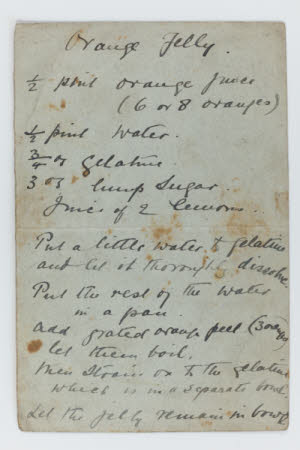 Orange Jelly.
½ pint orange juice
(6 or 8 oranges)
½ pint water.
¾ oz gelatine.
3 oz lump sugar.
Juice of 2 lemons.
Put a little water to gelatine
and let it thoroughly dissolve.
Put the rest of the water
in a pan.
add grated orange peel (3 oranges)
let them boil.
then strain on to the gelatine
which is in a separate bowl.
Let the jelly remain in bowl